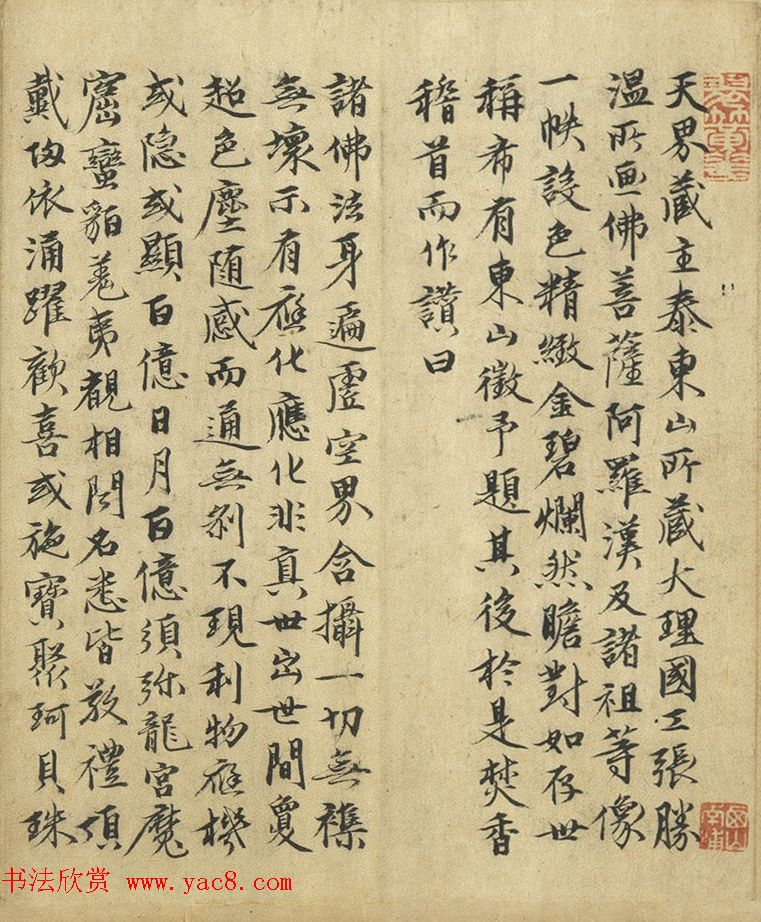 天界藏主泰東山所藏大理國工張勝
溫所画佛菩薩阿羅漢及諸祖等像
一帙設色精緻金碧爛然瞻對如存世
稱希有東山徵予題其後於是焚香
稽首而作讚曰
諸佛法身遍虛空界含攝一切無襍
無壞示有應化應化非真世出世間夐
超色塵随感而通無刹不現利物應機
或隐或顯百億日月百億須弥龍宮魔
窟蠻貊羌夷覩相聞名悉皆敬禮頂
戴皈依涌躍歡喜或施寶聚珂貝珠
书法欣赏 www.yac8.com